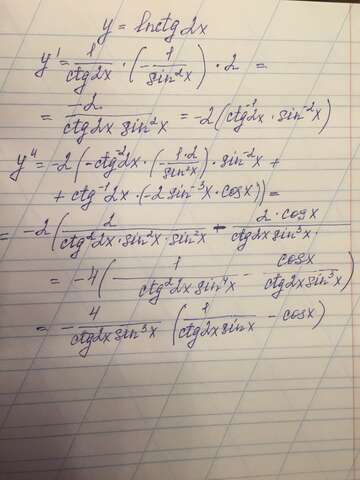 y = ln ctg 2x
y' = 1/ctg2x · (-1/sin²x) · 2 =
= -2/(ctg2x sin²x) = -2(ctg⁻¹2x · sin⁻²x)
y'' = -2(-ctg⁻²2x · (-1·2/sin²x) · sin⁻²x +
+ ctg⁻¹2x · (-2 sin⁻³x · cosx)) =
= -2(2/(ctg²2x · sin²x · sin²x) - 2·cosx/(ctg2x sin³x ·
= -4(1/(ctg²2x sin⁴x) - cosx/(ctg2x sin³x))
= -4/(ctg2x sin³x) (1/(ctg2x sinx) - cosx)